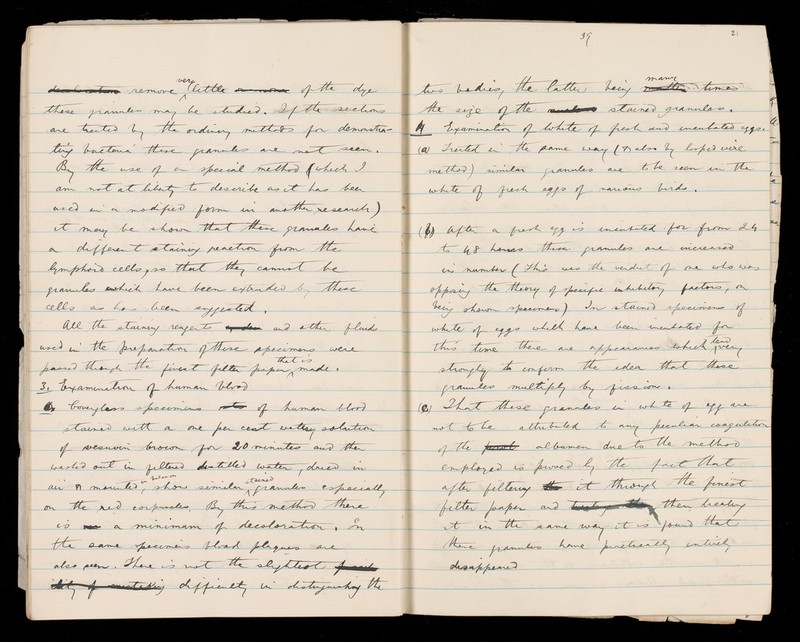 remove very little of the dye
these granules may be studied. If the sections
are treated by the ordinary methods for demonstra-
ting bacteria these granules are not seen.
By the use of a special method (which I
am not at liberty to describe as it has been
used in a modified form in another research)
it may be shown that these granules have
a different staining reaction from the
lymphoid cells, so that they cannot be
granules which have been extruded by these
cells as has been suggested.
All the staining reagents and other fluids
used in the preparation of these specimens were
passed though the finest filter paper that is made.
3. Examination of human blood
Coverglass specimens of human blood
stained with a one per cent watery solution
of vesuvin brown for 20 minutes and then
washed out in filtered distilled water, dried in
air & mounted, show similar stained granules especially
on the red corpuscles. By this method there
is a minimum of decoloration. In
the same specimens blood plaques are
also seen. There is not the slightest
difficulty in distinguishing the
39
21
two bodies, the latter being many times
the size of the stained granules.
4 Examination of white of fresh and incubated eggs.
(a) Treated in the same way (& also by looped wire
method) similar granules are to be seen in the
white of fresh eggs of various birds.
(b) After a fresh egg is incubated for from 24
to 48 hours these granules are increased
in number (This was the verdict of one who was
opposing the theory of specific inhibitory factors, on
being shown specimens) In stained specimens of
white of eggs which have been incubated for
this time there are appearances which tend very
strongly to confirm the idea that these
granules multiply by fission.
(c) That these granules in white of egg are
not to be attributed to any peculiar coagulation
of the albumen due to the method
employed is proved by the fact that
after filtering it through the finest
filter paper and then treating
it in the same way it is found that
these granules have practically entirely
disappeared